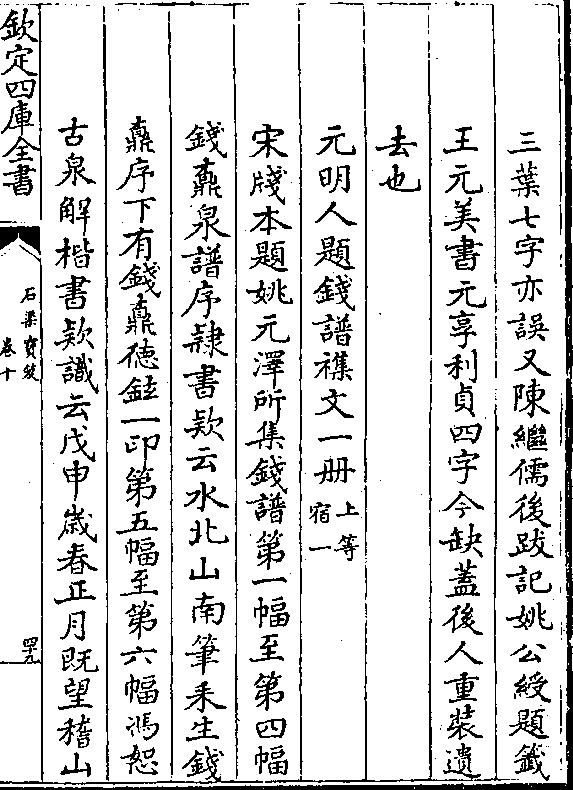 三葉七字亦誤又陳繼儒後跋記姚公綬題籤
王元美書元亨利貞四字今缺蓋後人重裝遺
去也
元明人題錢譜襍文一册上等宿一
宋牋本題姚元澤所集錢譜第一幅至第四幅
錢鼒泉譜序隷書欵云水北山南筆耒生錢
鼒序下有錢鼒德鉉一印第五幅至第六幅馮恕
古泉解楷書欵識云戊申嵗春正月既望稽山
欽定四庫全書
石渠寶笈
卷十
四十九